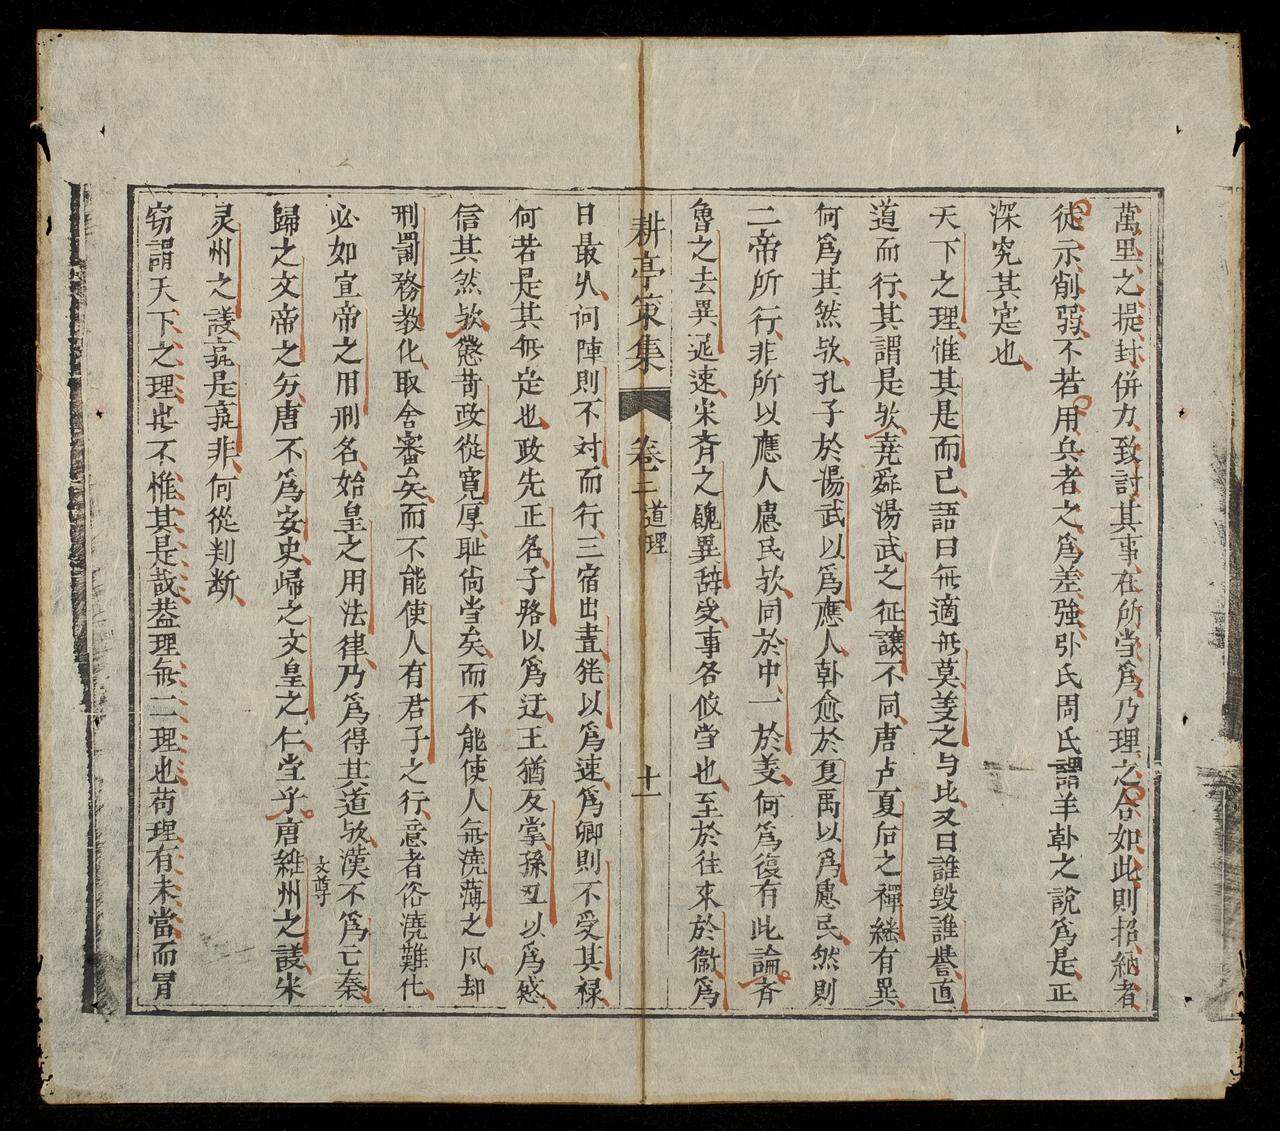 萬里之提封併力致討其事在所当爲乃理之合如此則招納者
徒示削弱不若用兵者之爲差強外氏周氏謂羊𠦝之說爲是正
深究其寔也
天下之理惟其是而已語曰無適無莫義之与比又曰誰毀誰譽直
道而行其謂是欤堯舜湯武之征讓不同唐卢夏后之禪継有異
何爲其然欤孔子於湯武以爲應人𠦝愈於夏禹以爲慮民然則
二帝所行非所以應人慮民欤同於中一於義何爲復有此論斉
魯之去異遅速宋斉之餽異辞受事各攸当也至於往來於衞爲
耕亭策集 卷三 道理 十一
日最久问陣則不対而行三宿出晝犹以爲速爲卿則不受其禄
何若是其無定也政先正名子路以爲迂王猶反掌孫丑以爲惑
信其然欤懲苛政從寛厚耻尚当矣而不能使人無澆薄之风却
刑罰務教化取舍審矣而不能使人有君子之行意者俗澆難化
必如宣帝之用刑名始皇之用法律乃爲得其道欤漢不爲亡秦
歸之文帝之务唐不爲安史歸之文皇之仁堂乎唐維州之議宋
文尊
灵州之議孰是孰非何從判断
窃謂天下之理岂不惟其是哉葢理無二理也苟理有未當而冐